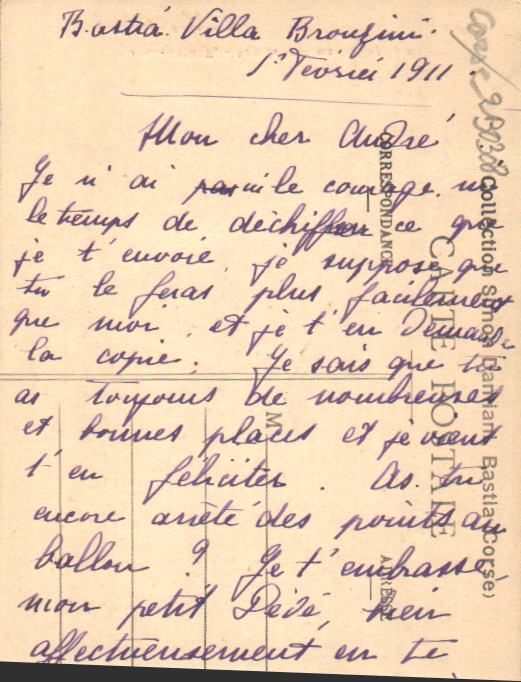 Bastia Villa Bronzini.
1r Février 1911.
Mon cher André
Je n'ai ni le courage ni
le temps de déchiffrer ce que
je t'envoie, je suppose que
tu le feras plus facilement
que moi, et je t'en demande
la copie. Je sais que tu
as toujours de nombreuses
et bonnes places et je veux
t'en féliciter. As-tu
encore arrêté des points au
ballon ? Je t'embrasse,
mon petit Dédé, bien
affectueusement en te
CARTE POSTALE
CORRESPONDANCE
ADRESSE
M
Collection Simon Damiani Bastia (Corse)
Corse